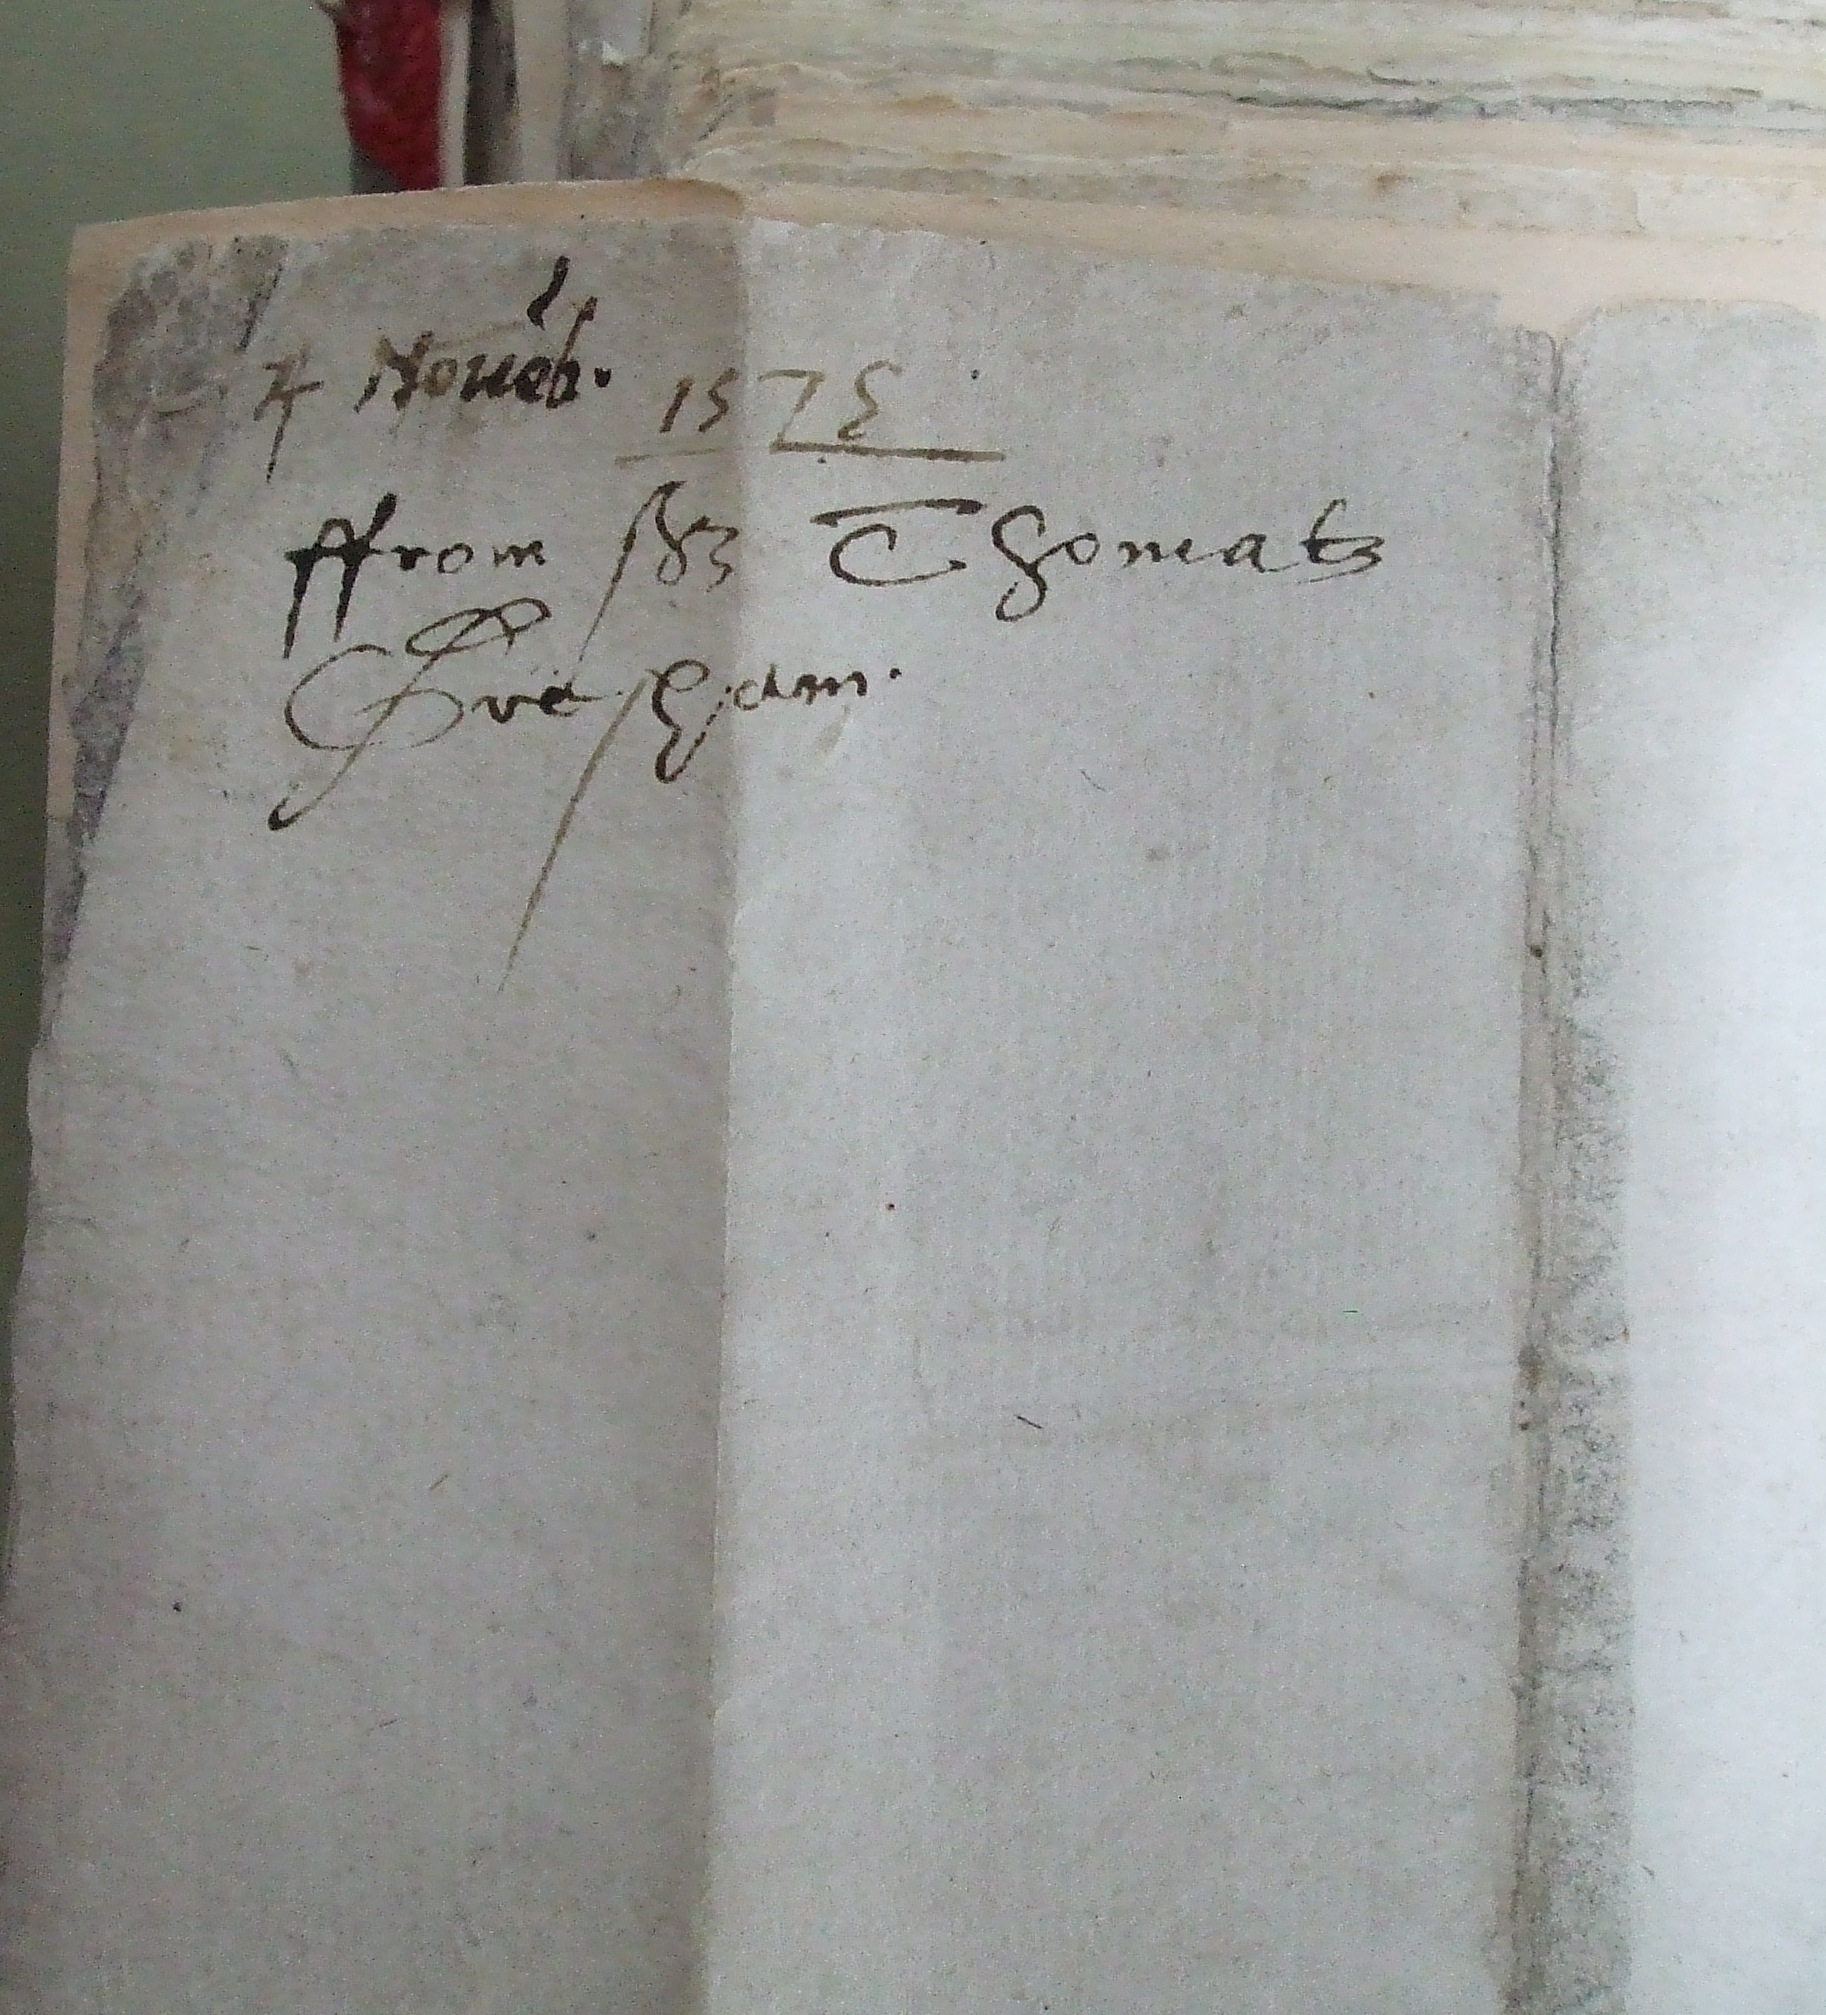 4 Noueb. 1575
ffrom ser Thomas
Gresham.